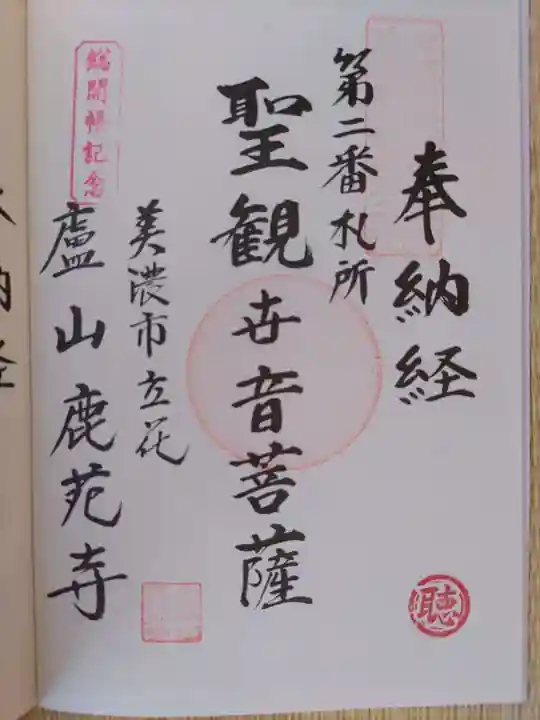 奉納経
第二番札所
聖観世音菩薩
美濃市立花
盧山鹿苑寺
総開帳記念
聴
納経